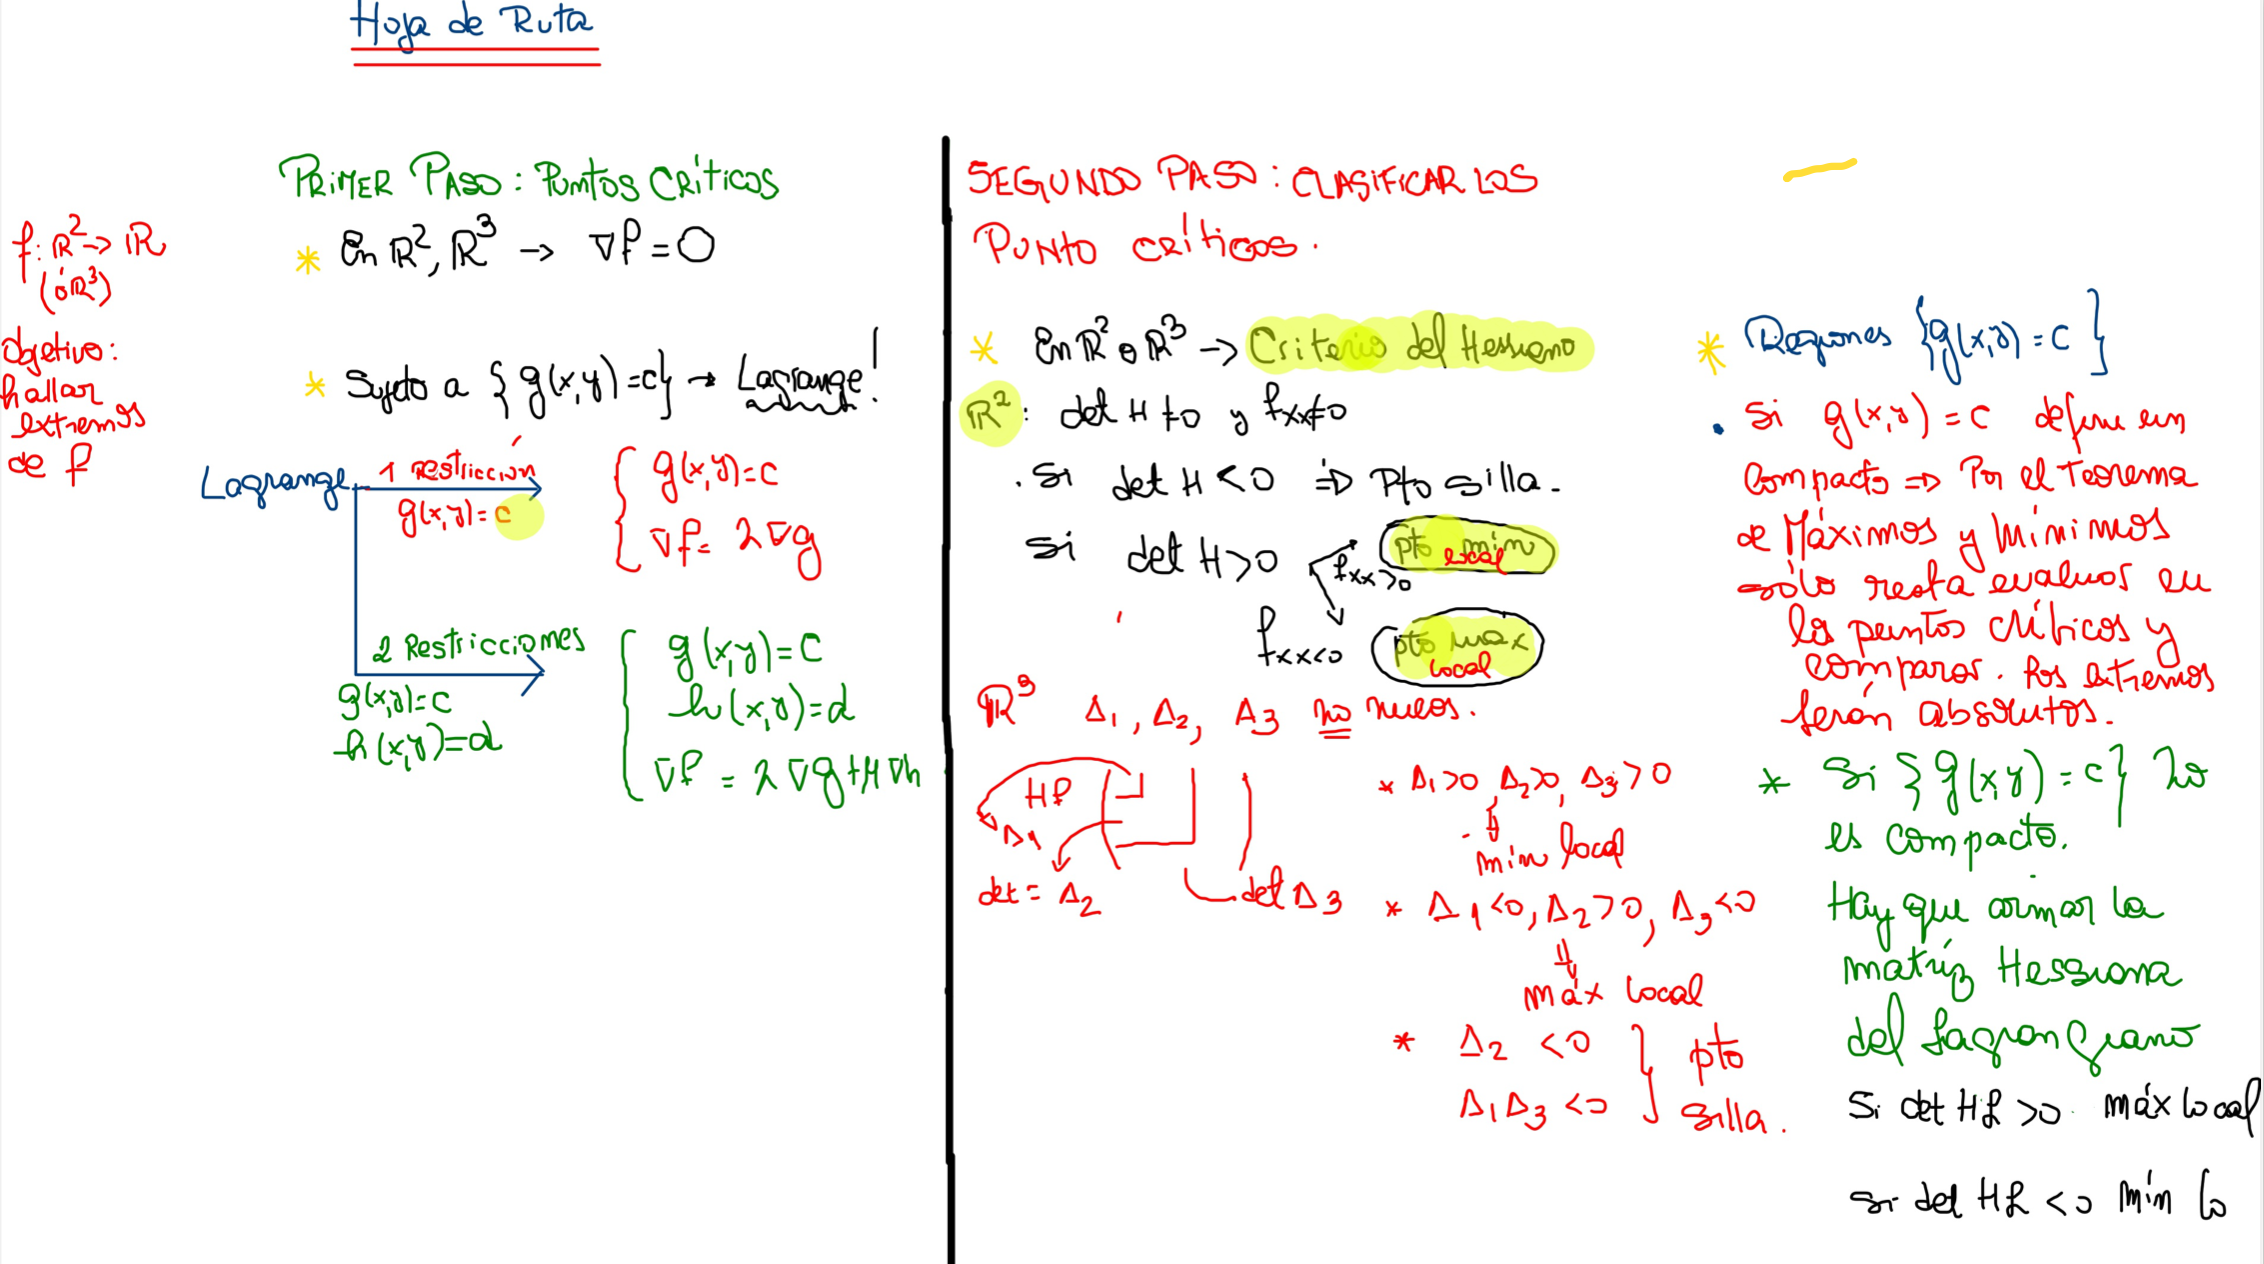 Hoja de Ruta
PRIMER PASO: PUNTOS CRÍTICOS
f: ℝ² → ℝ
(ó ℝ³)
Objetivo:
hallar
extremos
de f
* En ℝ², ℝ³ → ∇f = 0
* Sujeto a {g(x,y)=c} → Lagrange!
Lagrange
1 Restricción
g(x,y)=c
g(x,y)=c
∇f = λ∇g
2 Restricciones
g(x,y)=c
h(x,y)=d
g(x,y)=c
h(x,y)=d
∇f = λ∇g + μ∇h
SEGUNDO PASO: CLASIFICAR LOS
PUNTO CRÍTICOS.
* En ℝ² o ℝ³ → Criterio del Hessiano
ℝ²: det H ≠ 0 y fxx ≠ 0
. Si det H < 0 ⇒ Pto silla.
Si det H > 0
fxx>0
pto mín
local
fxx<0
pto max
local
ℝ³ Δ1, Δ2, Δ3 no nulos.
Hf
Δ1
det = Δ2
det Δ3
* Δ1>0, Δ2>0, Δ3>0
⇓
mín local
* Δ1<0, Δ2>0, Δ3<0
⇓
máx local
* Δ2 <0
Δ1Δ3 <0
pto
silla.
* Regiones {g(x,y)=c}
. Si g(x,y)=c define un
compacto ⇒ Por el Teorema
de Máximos y Mínimos
sólo resta evaluar en
los puntos críticos y
comparar. Los extremos
serán absolutos.
* Si {g(x,y)=c} no
es compacto.
Hay que armar la
matriz Hessiana
del Lagrangiano
Si det Hℒ >0 máx local
si det Hℒ <0 mín lo